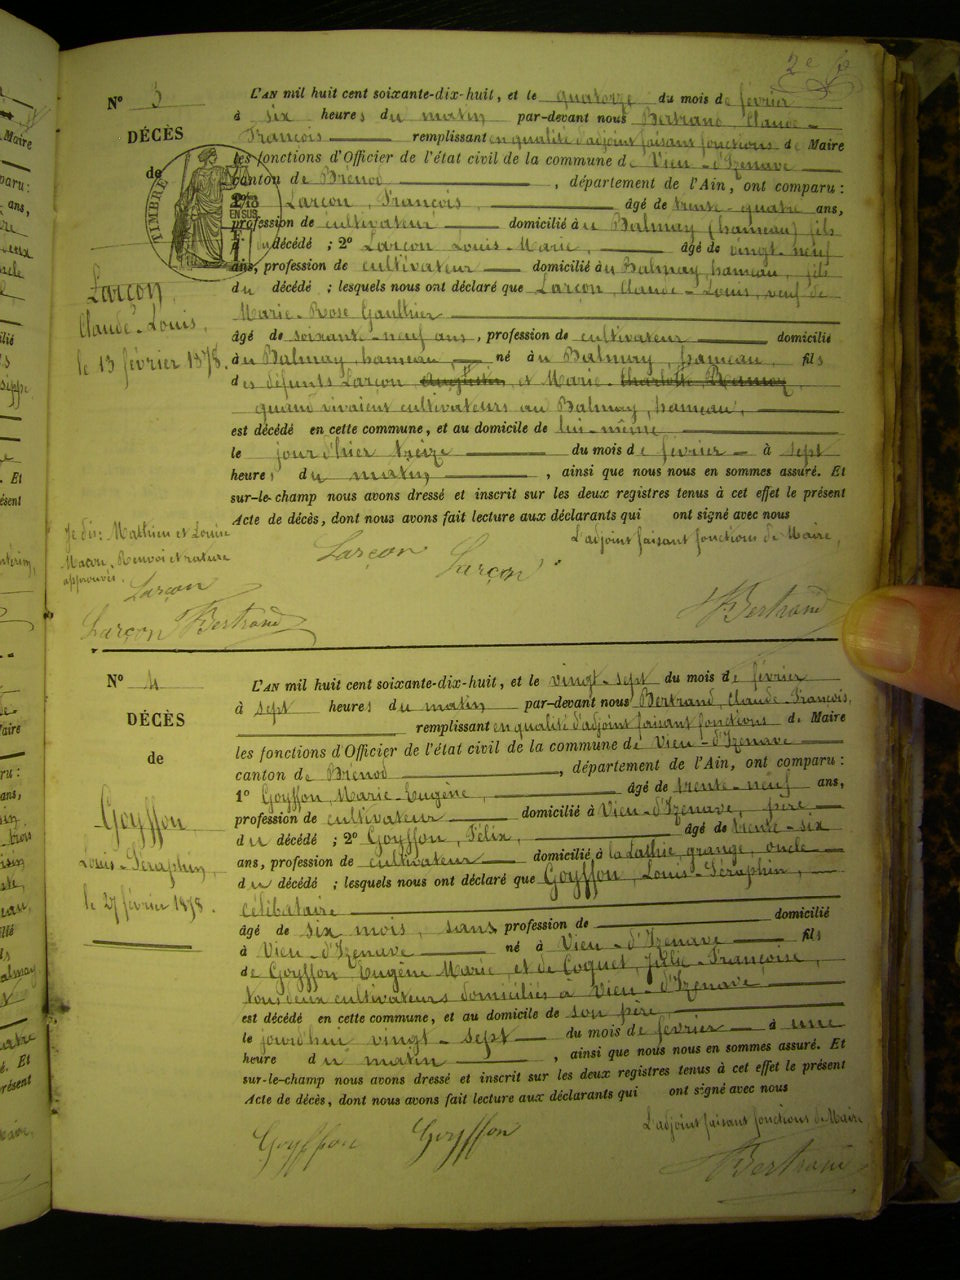 2e
N° 3
DÉCÈS
de
Larçon,
Claude-Louis,
le 13 février 1878.
L'AN mil huit cent soixante-dix-huit, et le quatorze du mois de février
à six heures du matin par-devant nous Bertrand Claude-
François remplissant en qualité d'adjoint faisant fonctions de Maire
les fonctions d'Officier de l'état civil de la commune de Vieu-d'Izenave
canton de Brenod, département de l'Ain, ont comparu :
Larçon, François, âgé de trente-quatre ans,
profession de cultivateur domicilié au Balmay (hameau) fils
du décédé ; 2° Larçon Louis-Marie, âgé de vingt-neuf
ans, profession de cultivateur domicilié au Balmay, hameau, fils
du décédé ; lesquels nous ont déclaré que Larçon, Claude-Louis, veuf de
Marie-Rose Gauthier
âgé de soixante-neuf ans, profession de cultivateur domicilié
au Balmay, hameau, né au Balmay, hameau, fils
des défunts Larçon Augustin et Marie-Charlotte
quand vivaient cultivateurs au Balmay, hameau,
est décédé en cette commune, et au domicile de lui-même
le jour d'hier treize du mois de février à sept
heures du matin, ainsi que nous nous en sommes assuré. Et
sur-le-champ nous avons dressé et inscrit sur les deux registres tenus à cet effet le présent
Acte de décès, dont nous avons fait lecture aux déclarants qui ont signé avec nous
L'adjoint faisant fonctions de Maire,
Je dis : Mathieu et Louise
Macon. Renvoi et rature
approuvés.
Larçon
Larçon Bertrand
Larçon Larçon
Bertrand
TIMBRE
EN SUS
N° 4
DÉCÈS
de
Goyffon
Louis-Séraphin,
le 27 février 1878.
L'AN mil huit cent soixante-dix-huit, et le vingt-sept du mois de février
à sept heures du matin par-devant nous Bertrand, Claude-François,
remplissant en qualité d'adjoint faisant fonctions de Maire
les fonctions d'Officier de l'état civil de la commune de Vieu-d'Izenave
canton de Brenod, département de l'Ain, ont comparu :
1° Goyffon, Marie-Eugène, âgé de trente-neuf ans,
profession de cultivateur domicilié à Vieu-d'Izenave, père
du décédé ; 2° Goyffon, Félix, âgé de trente-six
ans, profession de cultivateur domicilié à la Lathie, grange, oncle
du décédé ; lesquels nous ont déclaré que Goyffon, Louis-Séraphin,
célibataire
âgé de six mois, sans profession de domicilié
à Vieu-d'Izenave né à Vieu-d'Izenave fils
de Goyffon Eugène Marie et de Coquet, Julie-Françoise,
tous deux cultivateurs domiciliés à Vieu-d'Izenave
est décédé en cette commune, et au domicile de son père,
le jourd'hui vingt-sept du mois de février à une
heure du matin, ainsi que nous nous en sommes assuré. Et
sur-le-champ nous avons dressé et inscrit sur les deux registres tenus à cet effet le présent
Acte de décès, dont nous avons fait lecture aux déclarants qui ont signé avec nous
L'adjoint faisant fonctions de Maire
Goyffon Goyffon
Bertrand